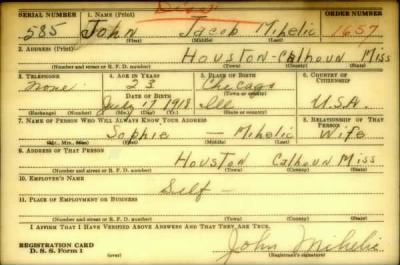 SERIAL NUMBER 1. NAME (Print) ORDER NUMBER
585 John Jacob Mihelic 1657
(First) (Middle) (Last)
2. ADDRESS (Print)
Houston-Calhoun Miss
(Number and street or R. F. D. number) (Town) (County) (State)
3. TELEPHONE 4. AGE IN YEARS 5. PLACE OF BIRTH 6. COUNTRY OF CITIZENSHIP
none 23 Chicago
DATE OF BIRTH (Town or county)
July 17 1918 Ill U.S.A.
(Exchange) (Number) (Mo.) (Day) (Yr.) (State or country)
7. NAME OF PERSON WHO WILL ALWAYS KNOW YOUR ADDRESS 8. RELATIONSHIP OF THAT PERSON
Sophie — Mihelic Wife
(Mr., Mrs., Miss) (First) (Middle) (Last)
9. ADDRESS OF THAT PERSON
Houston Calhoun Miss
(Number and street or R. F. D. number) (Town) (County) (State)
10. EMPLOYER'S NAME
Self —
11. PLACE OF EMPLOYMENT OR BUSINESS
(Number and street or R. F. D. number) (Town) (County) (State)
I AFFIRM THAT I HAVE VERIFIED ABOVE ANSWERS AND THAT THEY ARE TRUE.
REGISTRATION CARD
D. S. S. Form 1
John Mihelic
(Registrant's signature)